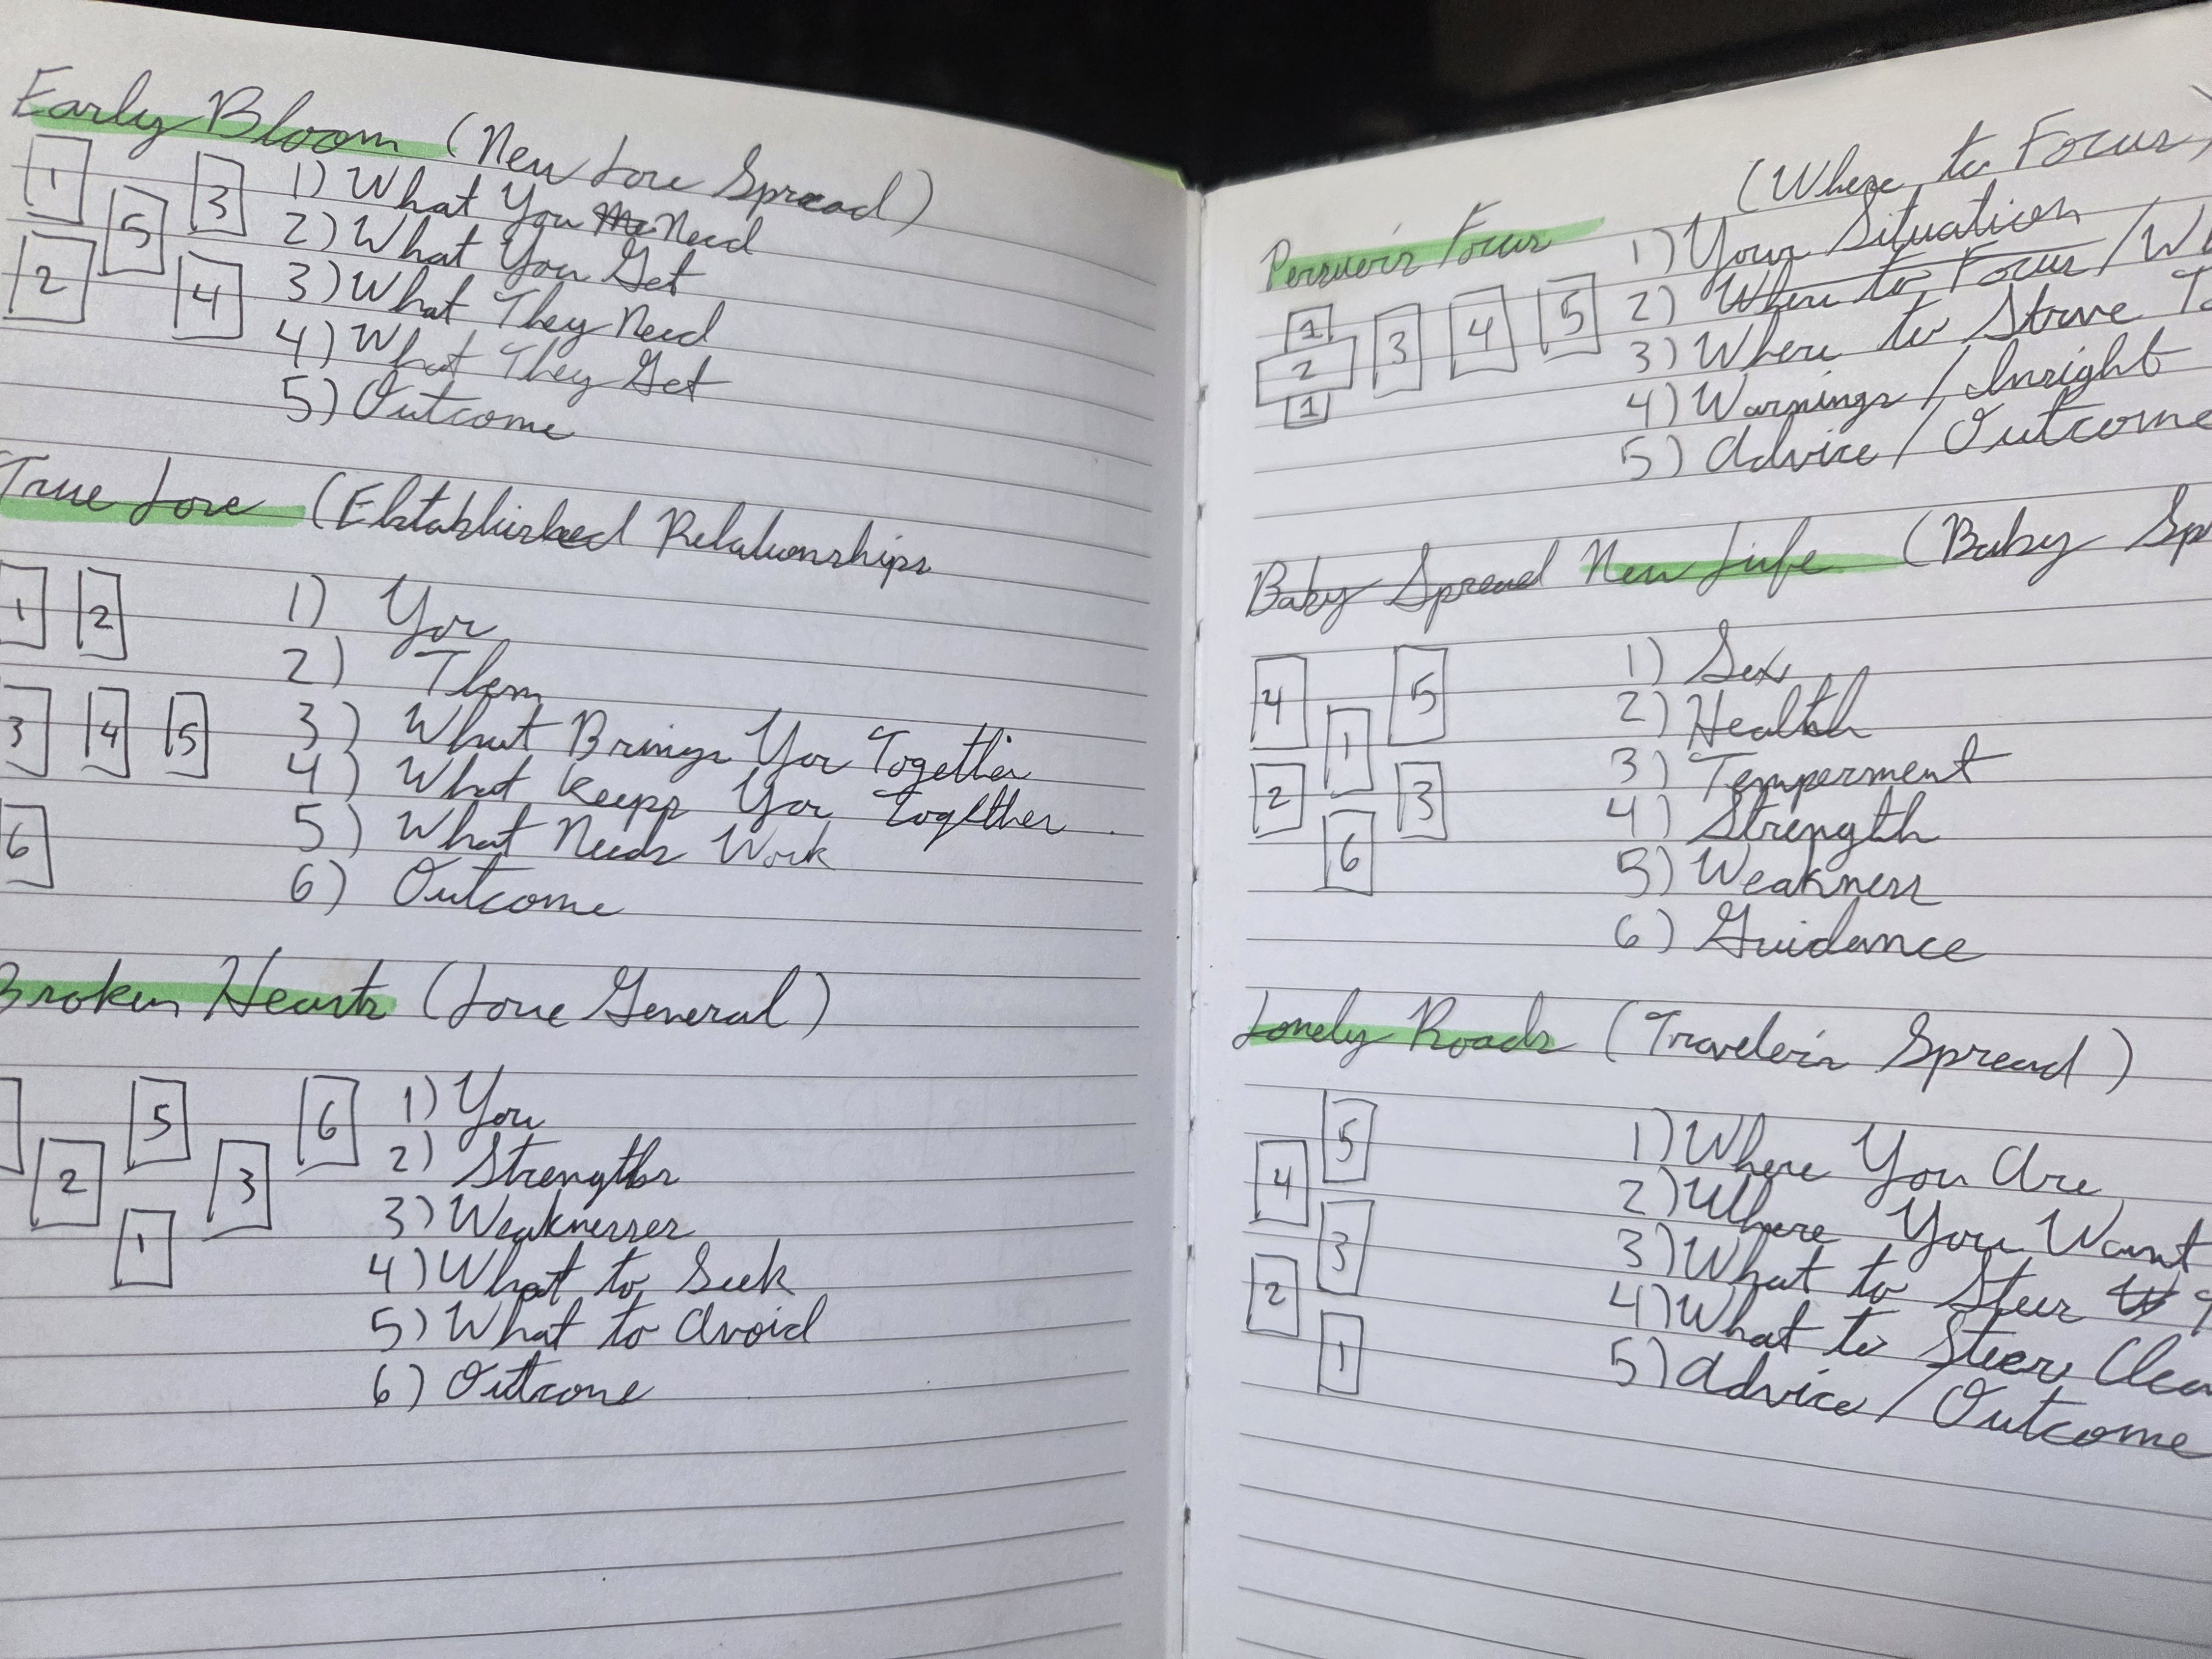 Early Bloom (New Love Spread)
1 3 1) What You Need
5 2) What You Get
2 4 3) What They Need
4) What They Get
5) Outcome
True Love (Ektablished Relationships
1 2 1) You
2) Them
3 4 5 3) What Brings You Together
4) What Keeps You Together
6 5) What Needs Work
6) Outcome
Broken Hearts (Love General)
5 6 1) You
2 3 2) Strengths
1 3) Weaknesses
4) What to Seek
5) What to Avoid
6) Outcome
(Where to Focus)
Persuer's Focus 1) Your Situation
1 2) Where to Focus /
2 3 4 5 3) Where to Strive
1 4) Warnings / Insight
5) Advice / Outcome
Baby Spread New Life (Baby
4 5 1) Sex
1 2) Health
2 3 3) Temperment
6 4) Strength
5) Weakness
6) Guidance
Lonely Roads (Traveler's Spread)
5 1) Where You Are
4 2) Where You Want
3 3) What to Steer
2 4) What to Steer
1 5) Advice / Outcome